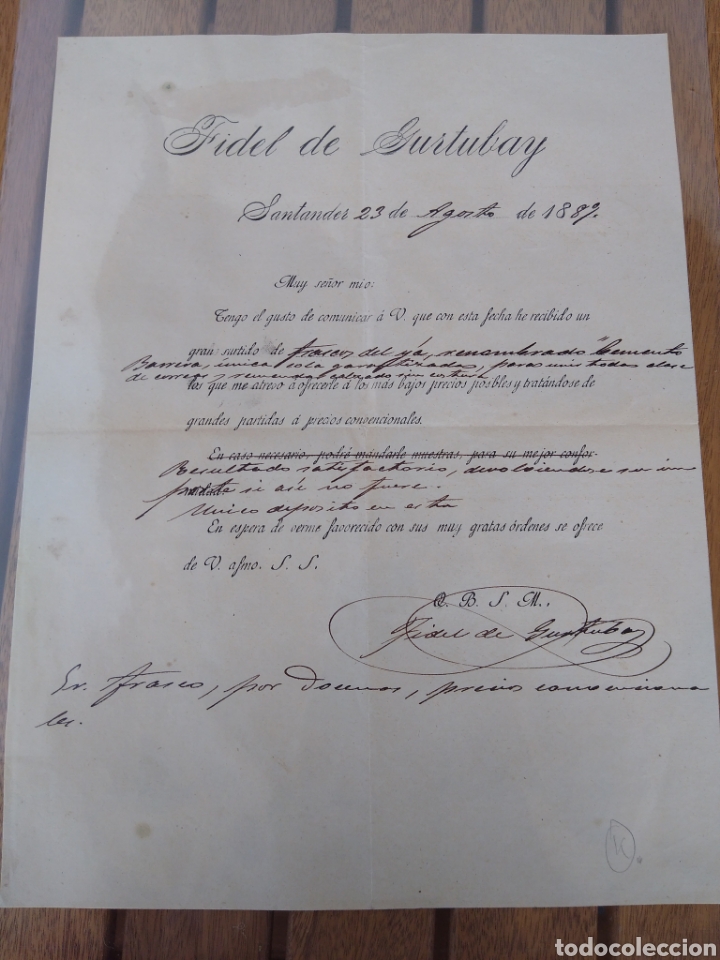 Fidel de Gurtubay
Santander 23 de Agosto de 1889.
Muy señor mio:
Tengo el gusto de comunicar á V. que con esta fecha he recibido un
gran surtido de frascos del yá, renombrado "Cemento
Barrera, única cola para toda clase
de correas y remendar calzado sin costura
los que me atreso á ofrecerle á los más bajos precios posbles y tratándose de
grandes partidas á precios convencionales.
En caso necesario, podré mandarle muestras, para su mejor confor-
Resultado satisfactorio, devolviendose su im
midad.
porte si asi no fuere.
Unico deposito en esta
En espera de verme favorecido con sus muy gratas órdenes se ofrece
de V. afmo. S. S.
Q. B. S. M.,
Fidel de Gurtubay
frasco, por docenas, precios convenciona
les.
K
todocoleccion